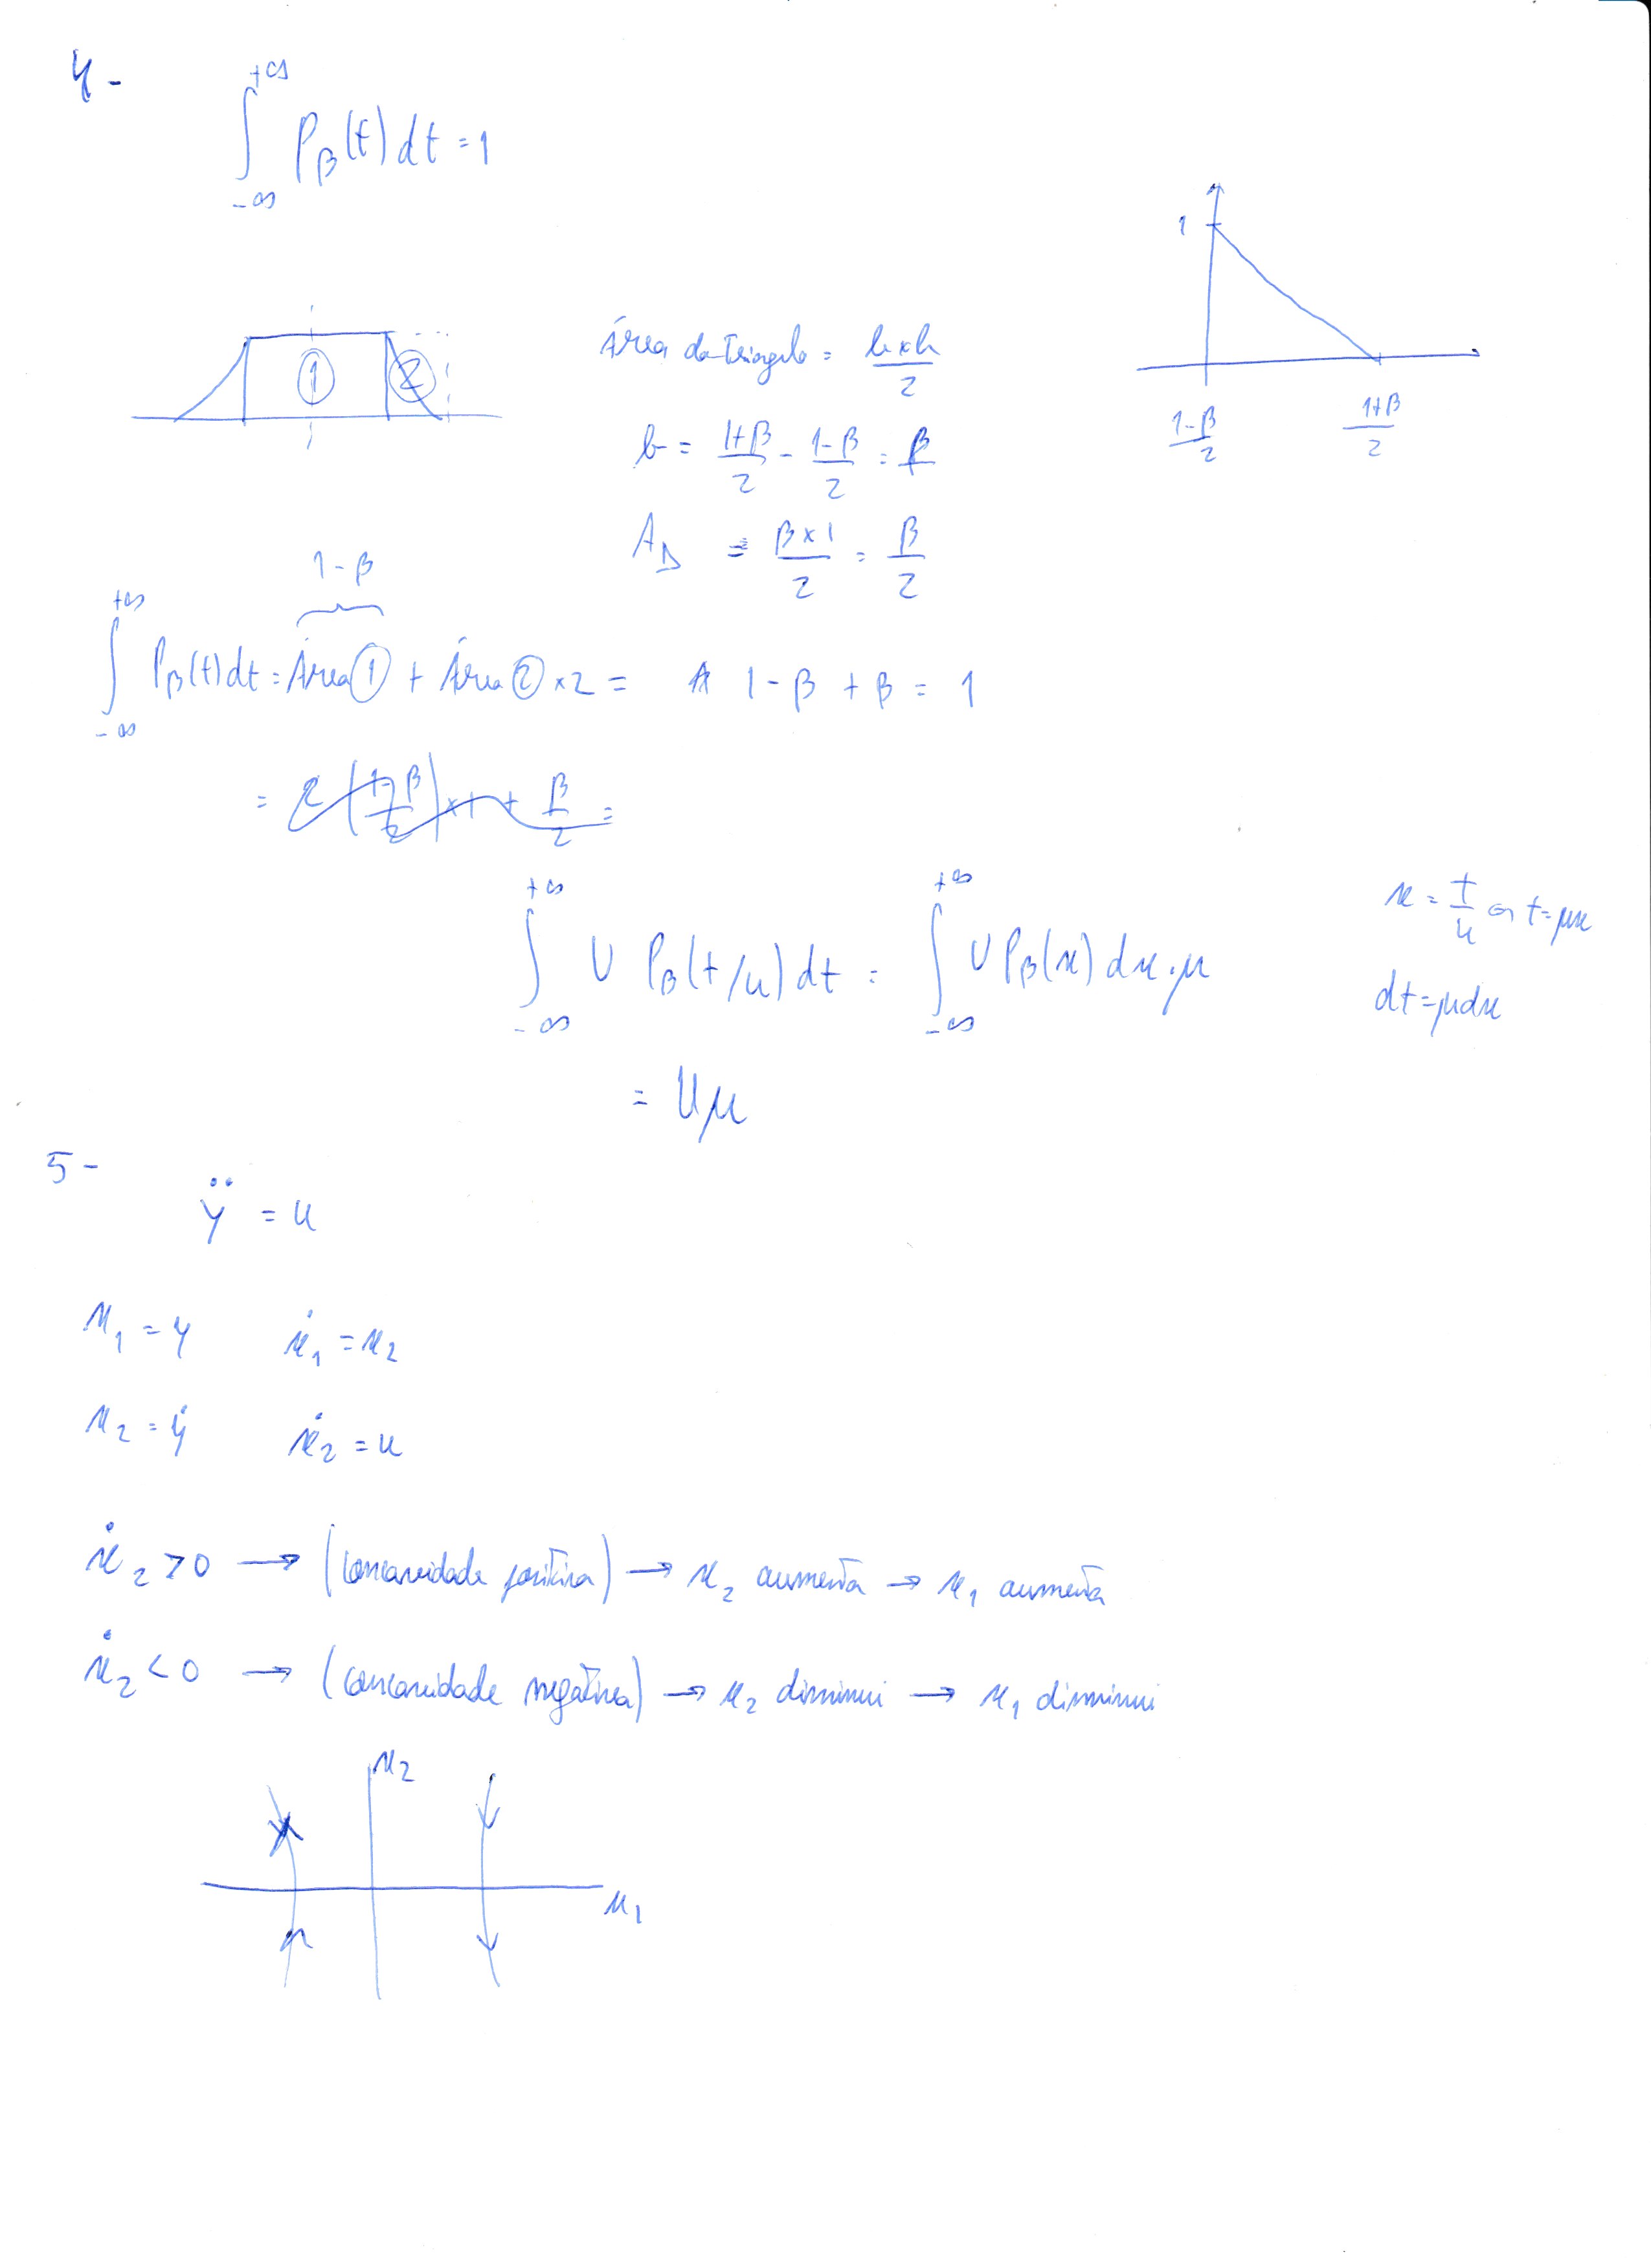 4-
∫_{-∞}^{+∞} P_β(t) dt = 1
1
① ②
Área do Triangulo = b×h/2
1-β/2 1+β/2
b = 1+β/2 - 1-β/2 = β
A_Δ = β×1/2 = β/2
1-β
∫_{-∞}^{+∞} P_β(t) dt = Área ① + Área ② ×2 = 1-β + β = 1
=
∫_{-∞}^{+∞} U P_β(t/u) dt = ∫_{-∞}^{+∞} U P_β(x) dx.μ
x = t/u ⇔ t=μx
dt=μdx
= Uμ
5-
ÿ = u
x₁ = y ẋ₁ = x₂
x₂ = ẏ ẋ₂ = u
ẋ₂ > 0 → (concavidade positiva) → x₂ aumenta → x₁ aumenta
ẋ₂ < 0 → (concavidade negativa) → x₂ diminui → x₁ diminui
x₂
x₁